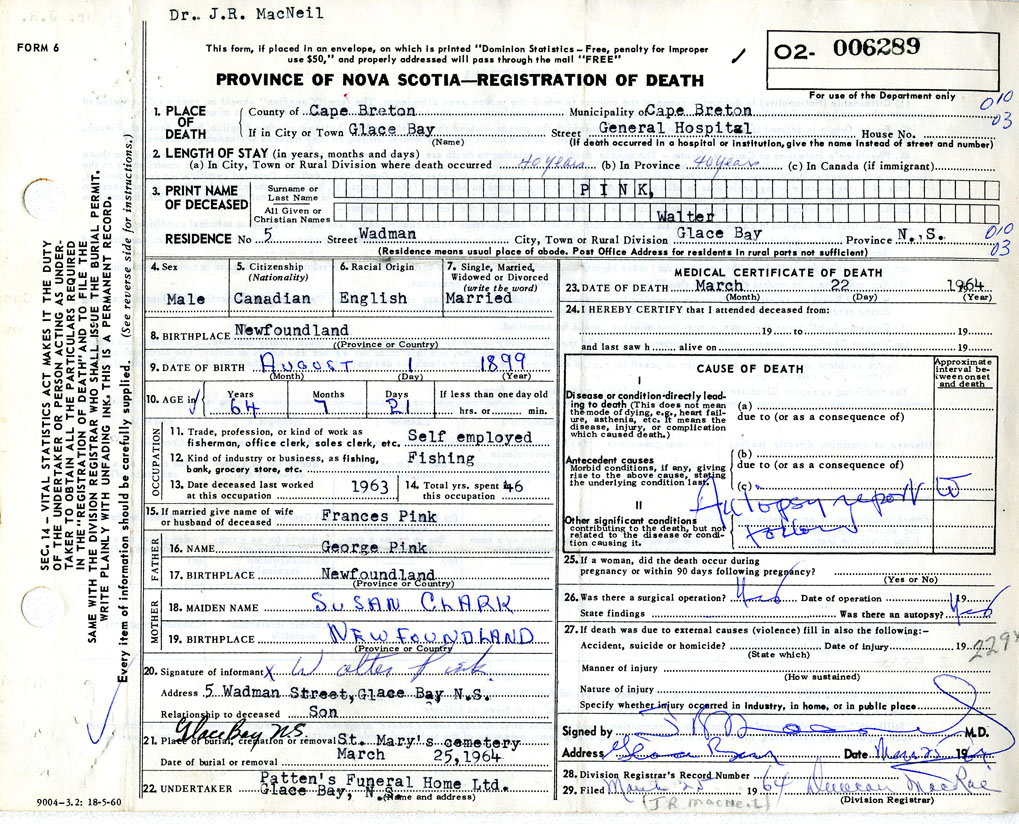 Dr. J.R. MacNeil
FORM 6
This form, if placed in an envelope, on which is printed "Dominion Statistics – Free, penalty for improper
use $50," and properly addressed will pass through the mail "FREE"
O2- 006289
PROVINCE OF NOVA SCOTIA—REGISTRATION OF DEATH
For use of the Department only
010
03
1. PLACE OF DEATH
County of Cape Breton Municipality of Cape Breton
If in City or Town Glace Bay Street General Hospital House No.
(Name) (If death occurred in a hospital or institution, give the name instead of street and number)
2. LENGTH OF STAY (in years, months and days)
(a) In City, Town or Rural Division where death occurred 40 years (b) In Province 40 years (c) In Canada (if immigrant)
3. PRINT NAME OF DECEASED
Surname or Last Name PINK,
All Given or Christian Names Walter
RESIDENCE No 5 Street Wadman City, Town or Rural Division Glace Bay Province N.S.
(Residence means usual place of abode. Post Office Address for residents in rural parts not sufficient)
010
03
4. Sex
Male
5. Citizenship (Nationality)
Canadian
6. Racial Origin
English
7. Single, Married, Widowed or Divorced (write the word)
Married
8. BIRTHPLACE Newfoundland
((Province or Country)
9. DATE OF BIRTH AUGUST 1 1899
(Month) (Day) (Year)
10. AGE in
Years Months Days If less than one day old
64 7 21 hrs. or min.
OCCUPATION
11. Trade, profession, or kind of work as
fisherman, office clerk, sales clerk, etc. Self employed
12. Kind of industry or business, as fishing,
bank, grocery store, etc. Fishing
13. Date deceased last worked
at this occupation 1963
14. Total yrs. spent in
this occupation 46
15. If married give name of wife
or husband of deceased Frances Pink
FATHER
16. NAME George Pink
17. BIRTHPLACE Newfoundland
(Province or Country)
MOTHER
18. MAIDEN NAME SUSAN CLARK
19. BIRTHPLACE NEWFOUNDLAND
(Province or Country)
20. Signature of informant X Walter Pink
Address 5 Wadman Street, Glace Bay N.S.
Relationship to deceased Son
Glace Bay N.S.
21. Place of burial, cremation or removal St. Mary's cemetery
Date of burial or removal March 25, 1964
22. UNDERTAKER Patten's Funeral Home Ltd.
Glace Bay, N.S.
(Name and address)
9004-3.2: 18-5-60
MEDICAL CERTIFICATE OF DEATH
23. DATE OF DEATH March 22 1964
(Month) (Day) (Year)
24. I HEREBY CERTIFY that I attended deceased from:
19 to 19
and last saw h alive on 19
CAUSE OF DEATH
Approximate interval between onset and death
I
Disease or condition directly leading to death (This does not mean the mode of dying, e.g., heart failure, asthenia, etc. It means the disease, injury, or complication which caused death.)
(a)
due to (or as a consequence of)
Antecedent causes
Morbid conditions, if any, giving rise to the above cause, stating the underlying condition last.
(b)
due to (or as a consequence of)
(c)
II
Other significant conditions
contributing to the death, but not related to the disease or condition causing it.
Autopsy report to
follow
25. If a woman, did the death occur during
pregnancy or within 90 days following pregnancy?
(Yes or No)
26. Was there a surgical operation? Yes Date of operation 19
State findings Was there an autopsy? Yes
27. If death was due to external causes (violence) fill in also the following:–
Accident, suicide or homicide? Date of injury 19
(State which)
229X
Manner of injury
(How sustained)
Nature of injury
Specify whether injury occurred in industry, in home, or in public place
Signed by M.D.
Address Glace Bay Date 19
28. Division Registrar's Record Number
29. Filed March 25 1964 Duncan MacRae
(J.R. MacNeil) (Division Registrar)
SEC. 14 – VITAL STATISTICS ACT MAKES IT THE DUTY
OF THE UNDERTAKER OR PERSON ACTING AS UNDERTAKER TO OBTAIN ALL THE PARTICULARS REQUIRED
IN THE "REGISTRATION OF DEATH" AND TO FILE THE
SAME WITH THE DIVISION REGISTRAR WHO SHALL ISSUE THE BURIAL PERMIT.
WRITE PLAINLY WITH UNFADING INK. THIS IS A PERMANENT RECORD.
Every item of information should be carefully supplied. (See reverse side for instructions.)